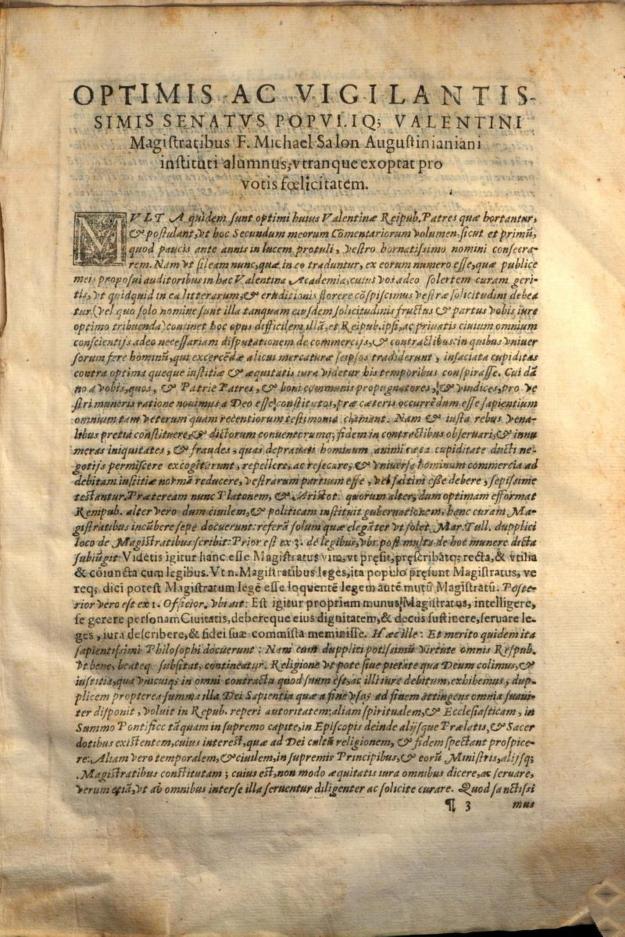 OPTIMIS AC VIGILANTIS-
SIMIS SENATVS POPVLIQ; VALENTINI
Magiſtratibus F. Michael Salon Auguſtinianiani
inſtituti alumnus, vtranque exoptat pro
votis fœlicitatem.
MVLTA quidem ſunt optimi huius Valentinæ Reipub. Patres quæ hortantur,
& poſtulant, vt hoc Secundum meorum Cōmentariorum volumen, ſicut et primū,
quod paucis ante annis in lucem protuli, veſtro hornatiſsimo nomini conſecra-
rem. Nam vt ſileam nunc, quæ in eo traduntur, ex eorum numero eſſe, quæ publice
meis propoſui auditoribus in hac Valentina Academia, cuius vos adeo ſolertem curam geri-
tis, vt quidquid in ea litterarum, & eruditionis florere cōſpiſcimus veſtræ ſolicitudini debea
tur (vel quo ſolo nomine ſunt illa tanquam eiuſdem ſolicitudinis fructus & partus vobis iure
optimo tribuenda) continet hoc opus difficilem illā, et Reipub. ipſi, ac priuatis ciuium omnium
conſcientijs adeo neceſſariam diſputationem de commercijs, & contractibus: in quibus vniuer
ſorum fere hominū, qui excercēdæ alicus mercaturæ ſeipſos tradiderunt, inſaciata cupiditas
contra optima queque inſtitiæ & æquitatis iura videtur his temporibus conſpiraſſe. Cui dā
no à vobis, quos, & Patriæ Patres, & boni communis propugnatores, & vindices, pro ve
ſtri muneris ratione nouimus à Deo eſſe conſtitutos, præ cæteris occurrēdum eſſe ſapientium
omnium tam veterum quam recentiorum teſtimonia clamant. Nam & iuſta rebus vena-
libus pretia conſtituere, & dictorum conuentorumq; fidem in contractibus obſeruari, & innu
meras iniquitates, & fraudes, quas deprauati hominum animi cæca cupiditate ducti ne-
gotijs permiſcere excogitarunt, repellere, ac reſecare, & vniuerſa hominum commercia ad
debitam iuſtitiæ normā reducere, veſtrarum partium eſſe, vel ſaltim eſſe debere, ſepiſsime
teſtantur. Præteream nunc Platonem, & Ariſtot. quorum alter, dum optimam efformat
Rempub. alter vero dum ciuilem, & politicam inſtituit gubernationem, hanc curam Ma-
giſtratibus incūbere ſepe docuerunt: referā ſolum quæ elegāter vt ſolet, Mar. Tull. dupplici
loco de Magiſtratibus ſcribit. Prior eſt ex 3. de legibus, vbi poſt multa de hoc munere dicta
ſubiūgit Videtis igitur hanc eſſe Magiſtratus vim, vt pręſit, pręſcribatq; recta, & vtilia
& cōiuncta cum legibus. Vt n. Magiſtratibus leges, ita populo pręſunt Magiſtratus, ve
req; dici poteſt Magiſtratum legē eſſe loquentē legem autē mutū Magiſtratū. Poſte-
rior vero eſt ex 1. Officior. vbi ait: Eſt igitur proprium munus Magiſtratus, intelligere,
ſe gerere perſonam Ciuitatis, debereque eius dignitatem, & decus ſuſtinere, ſeruare le-
ges, iura deſcribere, & fidei ſuæ commiſta meminiſſe. Hæc ille: Et merito quidem ita
ſapientiſsimi Philoſophi docuerunt: Nam cum dupplici potiſsimū virtute omnis Reſpub.
vt bene, beateq; ſubſiſtat, contineatur. Religione vt pote ſiue pietate qua Deum colimus, &
iuſtitia, qua vnicuiq; in omni contractu quod ſuum eſt, ac illi iure debitum, exhibemus, du-
plicem propterea ſumma illa Dei Sapientia quæ à fine vſq; ad finem attingens omnia ſuaui-
ter diſponit, voluit in Repub. reperi autoritatem: aliam ſpiritualem, & Eccleſiaſticam, in
Summo Pontifice tāquam in ſupremo capite, in Epiſcopis deinde alijſque Prælatis, & Sacer
dotibus exiſtentem, cuius intereſt, quæ ad Dei cultū religionem, & fidem ſpectant proſpice-
re: Aliam vero temporalem, & ciuilem, in ſupremis Principibus, & eorū Miniſtris, alijſq;
Magiſtratibus conſtitutam; cuius eſt, non modo æquitatis iura omnibus dicere, ac ſeruare,
verum etiā, vt ab omnibus interſe illa ſeruentur diligenter ac ſolicite curare. Quod ſanctiſsi
¶ 3 mus